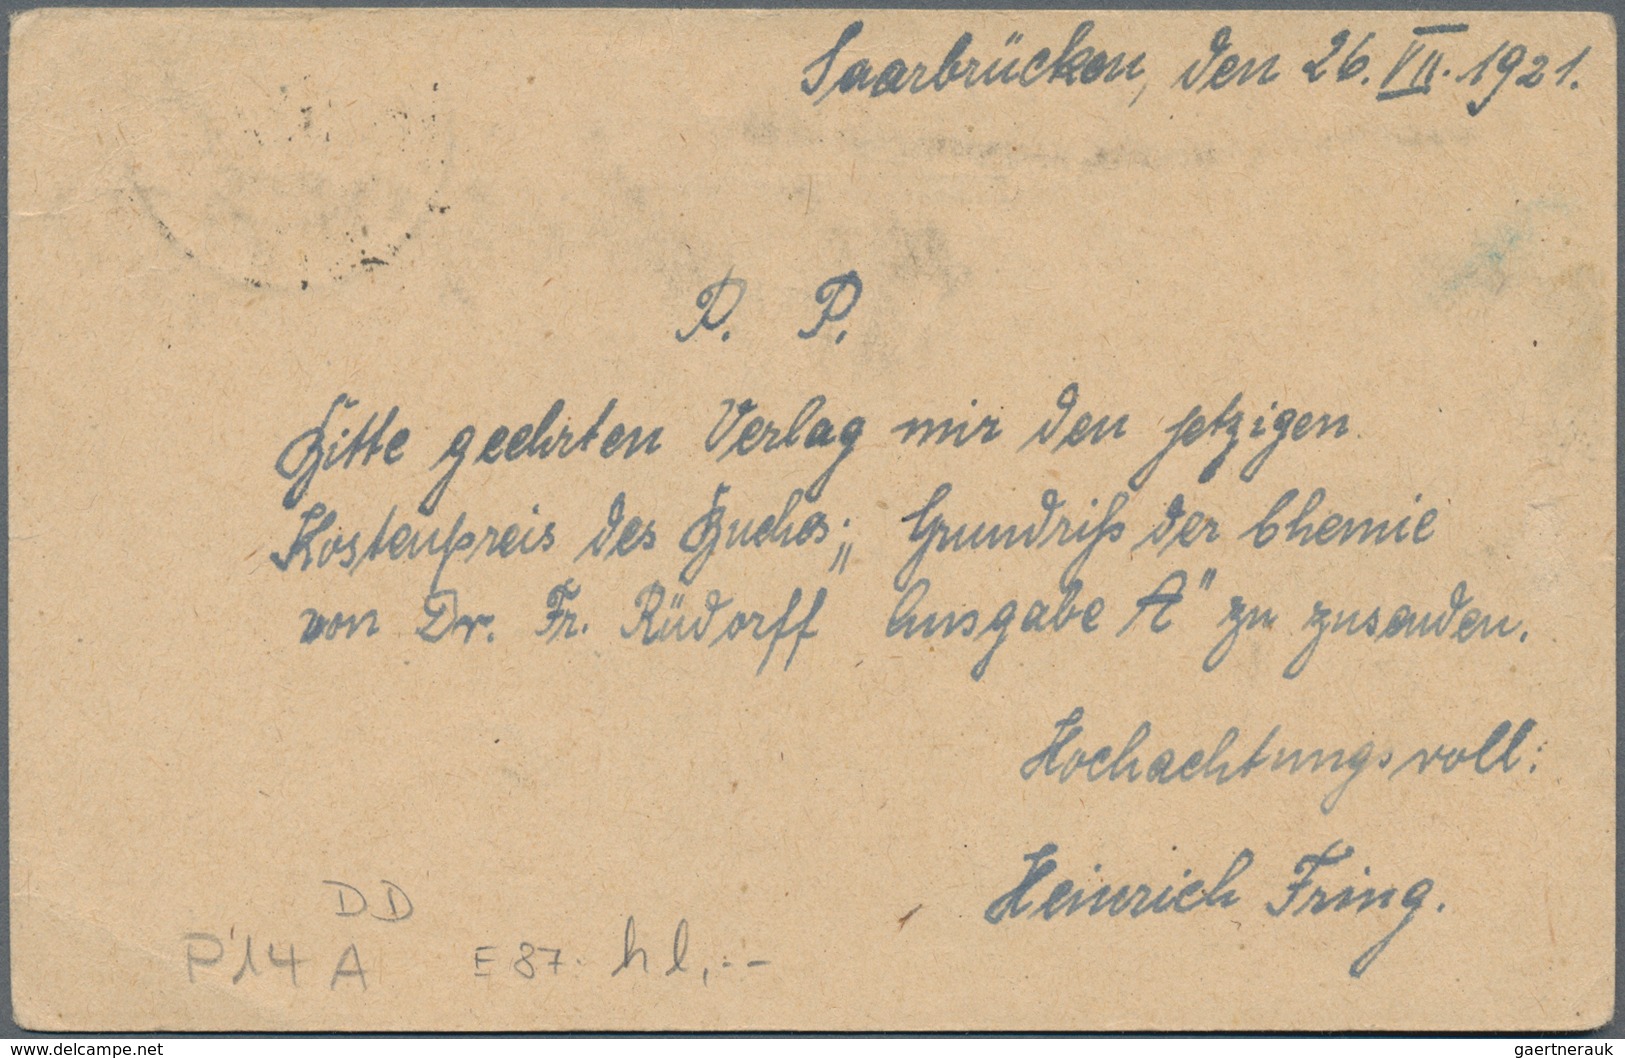 Saarbrücken, den 26. VII. 1921.
P. P.
Bitte geehrten Verlag mir den jetzigen
Kostenpreis des Buches; „Grundriß der Chemie
von Dr. Fr. Rüdorff Ausgabe A" zu zusenden.
Hochachtungsvoll:
Heinrich Fring.
DD
P14 A E 87.
www.delcampe.net
gaertnerauk